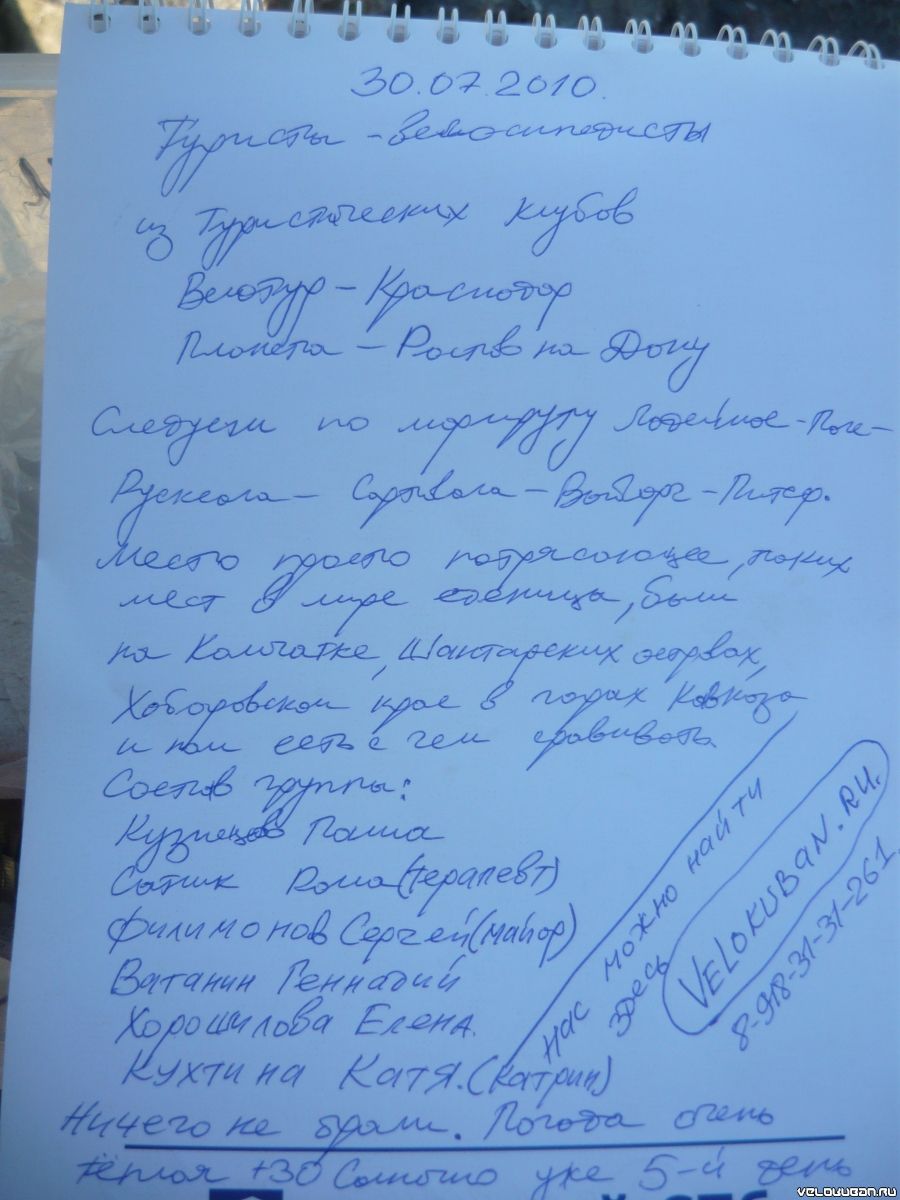 30.07.2010.
Туристы - велосипедисты
из Туристических клубов
Велотур - Краснодар
Планета - Ростов на Дону
Следуем по маршруту Лодейное - Поле -
Рускеала - Сортавала - Выборг - Питер.
Место просто потрясающее, таких
мест в мире единицы, были
на Камчатке, Шантарских островах,
Хабаровском крае в горах Кавказа
и нам есть с чем сравнивать.
Состав группы:
Кузнецов Паша
Сотник Рома (терапевт)
Филимонов Сергей (майор)
Ватанин Геннадий
Хорошилова Елена.
Кухтина Катя. (Катрин)
Нас можно найти
здесь VELOKUBAN.RU.
8-918-31-31-261.
Ничего не брали. Погода очень
тёплая +30 Солнечно уже 5-й день
VELOKUBAN.RU